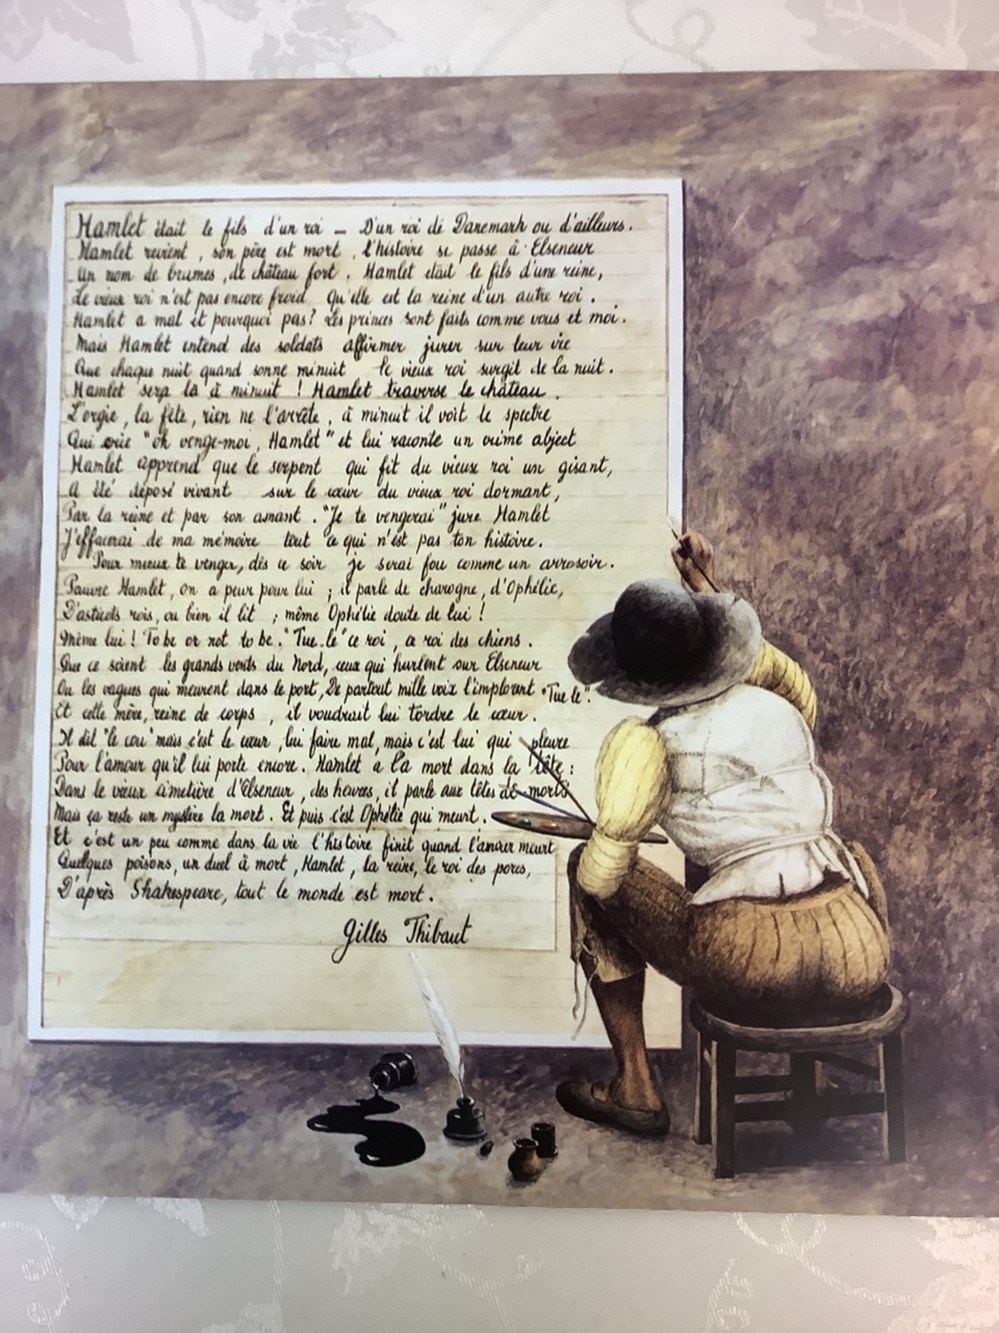 Hamlet était le fils d'un roi — D'un roi de Danemark ou d'ailleurs.
Hamlet revient, son père est mort, l'histoire se passe à Elseneur
Un nom de brumes, de château fort. Hamlet était le fils d'une reine,
Le vieux roi n'est pas encore froid Qu'elle est la reine d'un autre roi.
Hamlet a mal et pourquoi pas? Les princes sont faits comme vous et moi.
Mais Hamlet entend des soldats affirmer jurer sur leur vie
Que chaque nuit quand sonne minuit le vieux roi surgit de la nuit.
Hamlet sera là à minuit ! Hamlet traverse le château.
L'orgie, la fête, rien ne l'arrête, à minuit il voit le spectre
Qui crie "oh venge-moi, Hamlet" et lui raconte un crime abject
Hamlet apprend que le serpent qui fit du vieux roi un gisant,
A été déposé vivant sur le cœur du vieux roi dormant,
Par la reine et par son amant. "Je te vengerai" jure Hamlet
J'effacerai de ma mémoire tout ce qui n'est pas ton histoire.
Pour mieux te venger, dès ce soir je serai fou comme un arrosoir.
Pauvre Hamlet, on a peur pour lui ; il parle de charogne, d'Ophélie,
D'asticots rois, ou bien il lit ; même Ophélie doute de lui !
Même lui ! To be or not to be. "Tue. le" ce roi, ce roi des chiens.
Que ce soient les grands vents du Nord, ceux qui hurlent sur Elseneur
Ou les vagues qui meurent dans le port, De partout mille voix l'implorent "Tue le".
Et cette mère, reine de corps, il voudrait lui tordre le cœur.
Il dit "le cou" mais c'est le cœur, lui faire mal, mais c'est lui qui pleure
Pour l'amour qu'il lui porte encore. Hamlet a la mort dans la tête :
Dans le vieux cimetière d'Elseneur, des heures, il parle aux têtes de morts
Mais ça reste un mystère la mort. Et puis c'est Ophélie qui meurt.
Et c'est un peu comme dans la vie l'histoire finit quand l'amour meurt
Quelques poisons, un duel à mort, Hamlet, la reine, le roi des porcs,
D'après Shakespeare, tout le monde est mort.
Gilles Thibaut